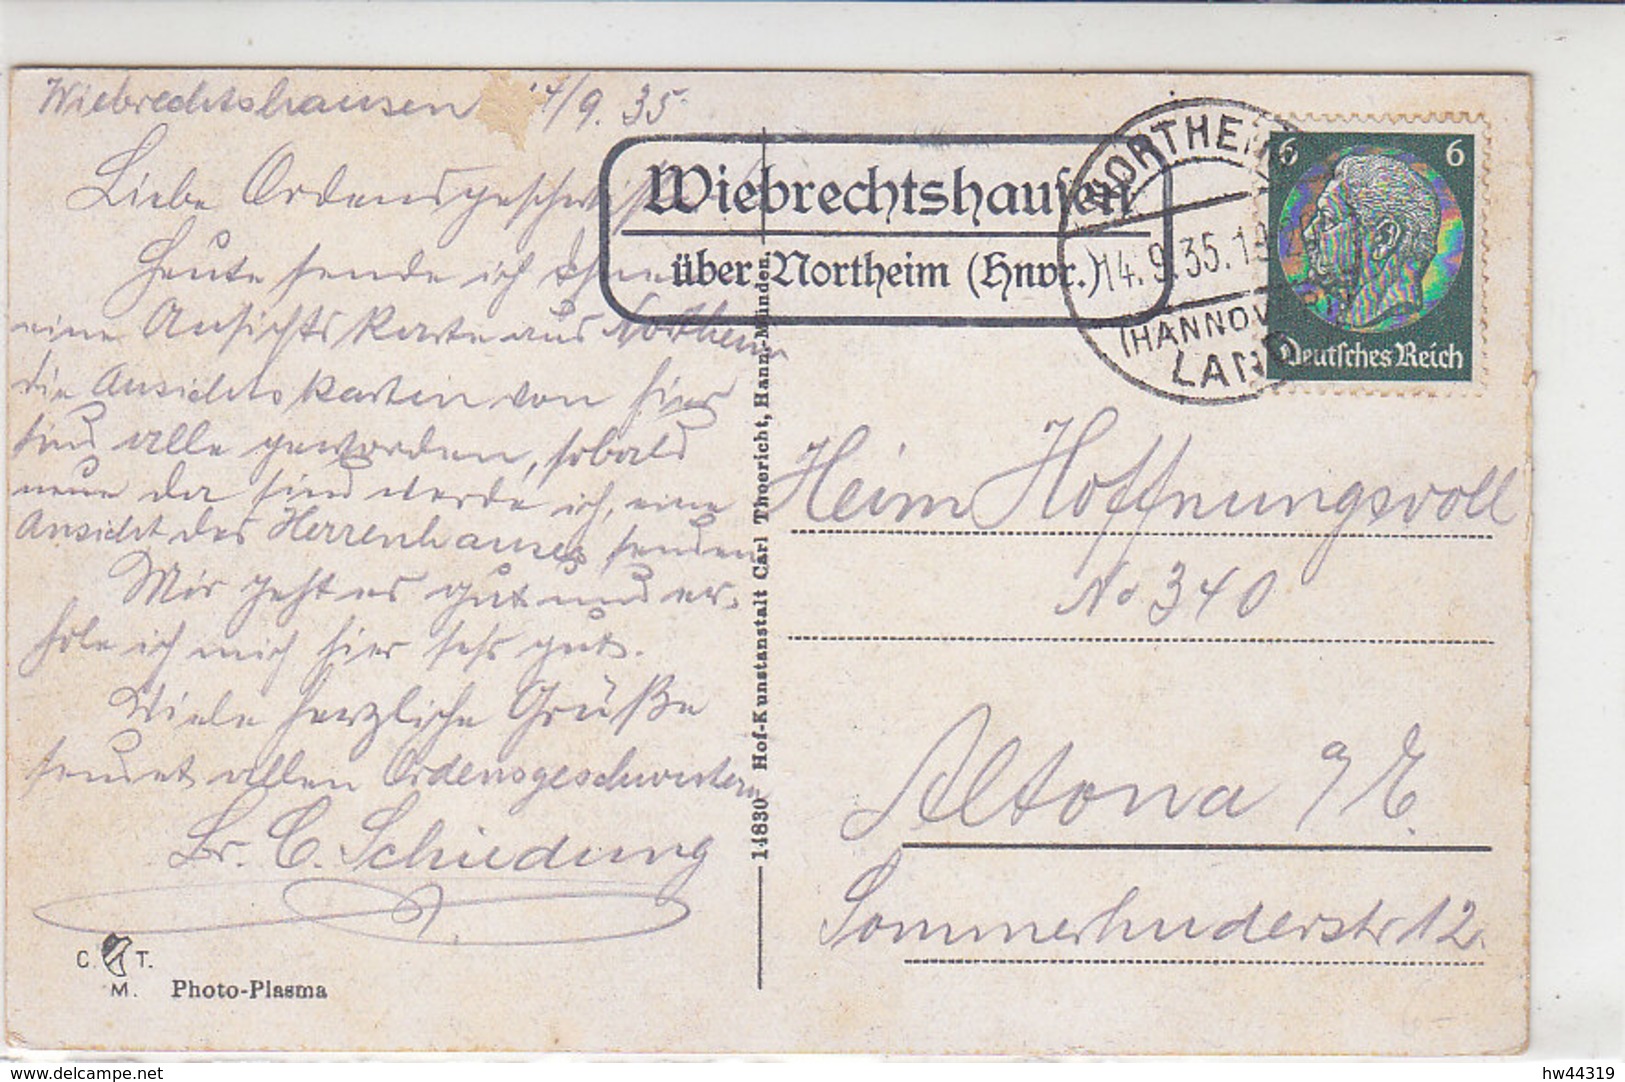 Wiebrechtshausen 14/9. 35.
Liebe Ordensgeschwister
Heute sende ich Ihnen
eine Ansichtskarte aus Northeim
die Ansichtskarten von hier
sind alle geworden, sobald
neue da sind werde ich, eine
Ansicht des Herrenhauses senden
Mir geht es gut und er-
hole ich mich hier sehr gut.
Viele herzliche Grüße
sendet allen Ordensgeschwistern
Br. C. Schiedung
C. T.
M. Photo-Plasma
14830 Hof-Kunstanstalt Carl Thoericht, Hann.-Münden.
Wiebrechtshausen
über Northeim (Hnvr.)
NORTHEIM
14.9.35.19
(HANNOV
LAND
6 6
Deutsches Reich
Heim Hoffnungsvoll
No 340
Altona a/E.
Sommerhuderstr 12.
www.delcampe.net
hw44319